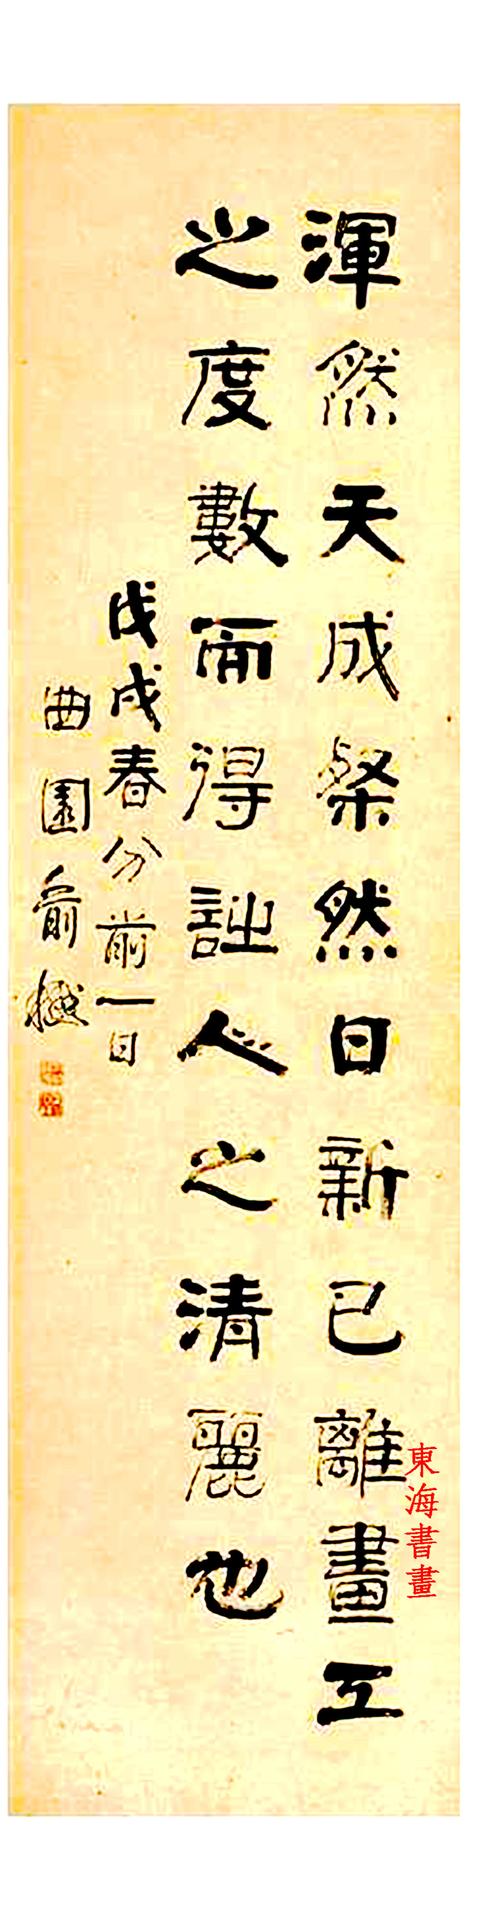 渾然天成粲然日新已離畫工
之度數而得詩人之清麗也
戊戌春分前一日
曲園俞樾
東海書畫